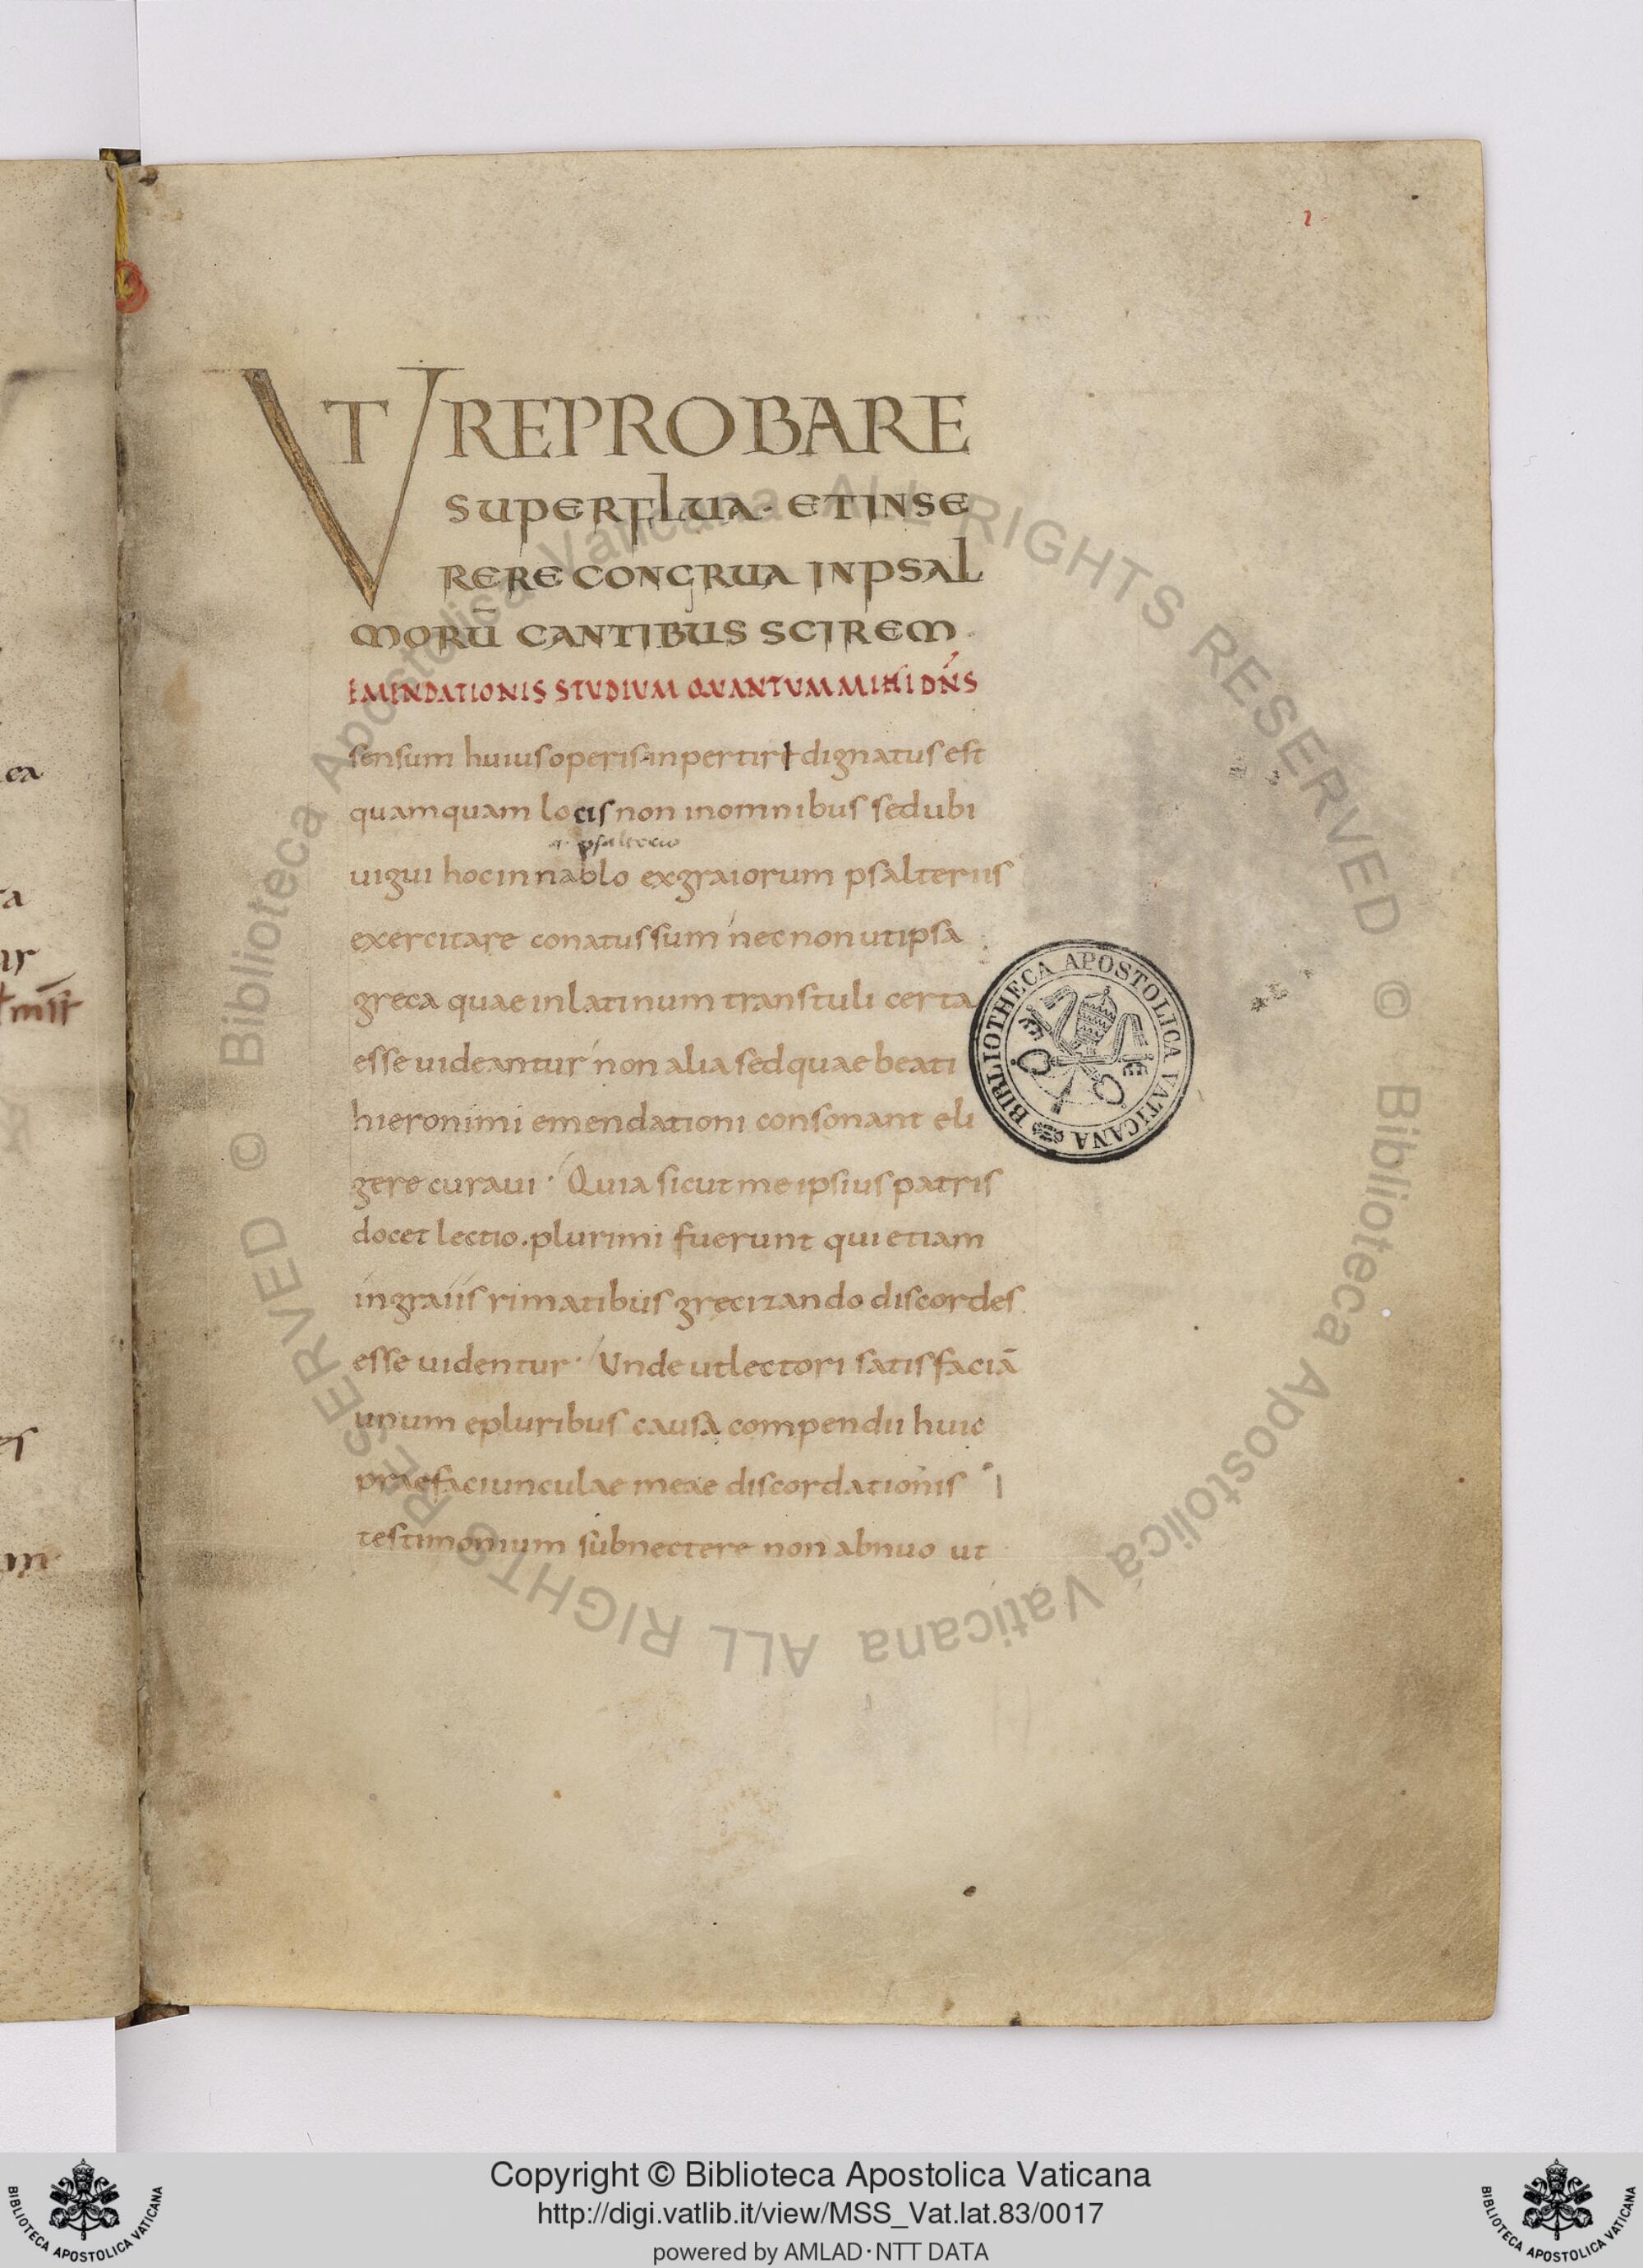 1
VT REPROBARE
SUPERFLUA · ET INSE
RERE CONGRUA IN PSAL
MORŪ CANTIBUS SCIREM
EMENDATIONIS STVDIUM QVANTVM MIHI DN̄S
sensum huius operis inpertire dignatus est
quamquam locis non in omnibus sed ubi
psalterio
uigui hoc in nablo ex graiorum psalteriis
exercitare conatus sum nec non ut ipsa
greca quae in latinum transtuli certa
esse uideantur non alia sed quae beati
hieronimi emendationi consonant eli
gere curaui · Quia sicut me ipsius patris
docet lectio . plurimi fuerunt qui etiam
in graiis rimatibus grecizando discordes
esse uidentur · Unde ut lectori satisfaciā
unum e pluribus causa compendii huic
praefaciunculae meae discordationis
testimonium subnectere non abnuo ut
BIBLIOTHECA APOSTOLICA VATICANA
© Biblioteca Apostolica Vaticana ALL RIGHTS RESERVED © Biblioteca Apostolica Vaticana ALL RIGHTS RESERVED
Copyright © Biblioteca Apostolica Vaticana
http://digi.vatlib.it/view/MSS_Vat.lat.83/0017
powered by AMLAD·NTT DATA
BIBLIOTECA APOSTOLICA VATICANA
BIBLIOTECA APOSTOLICA VATICANA